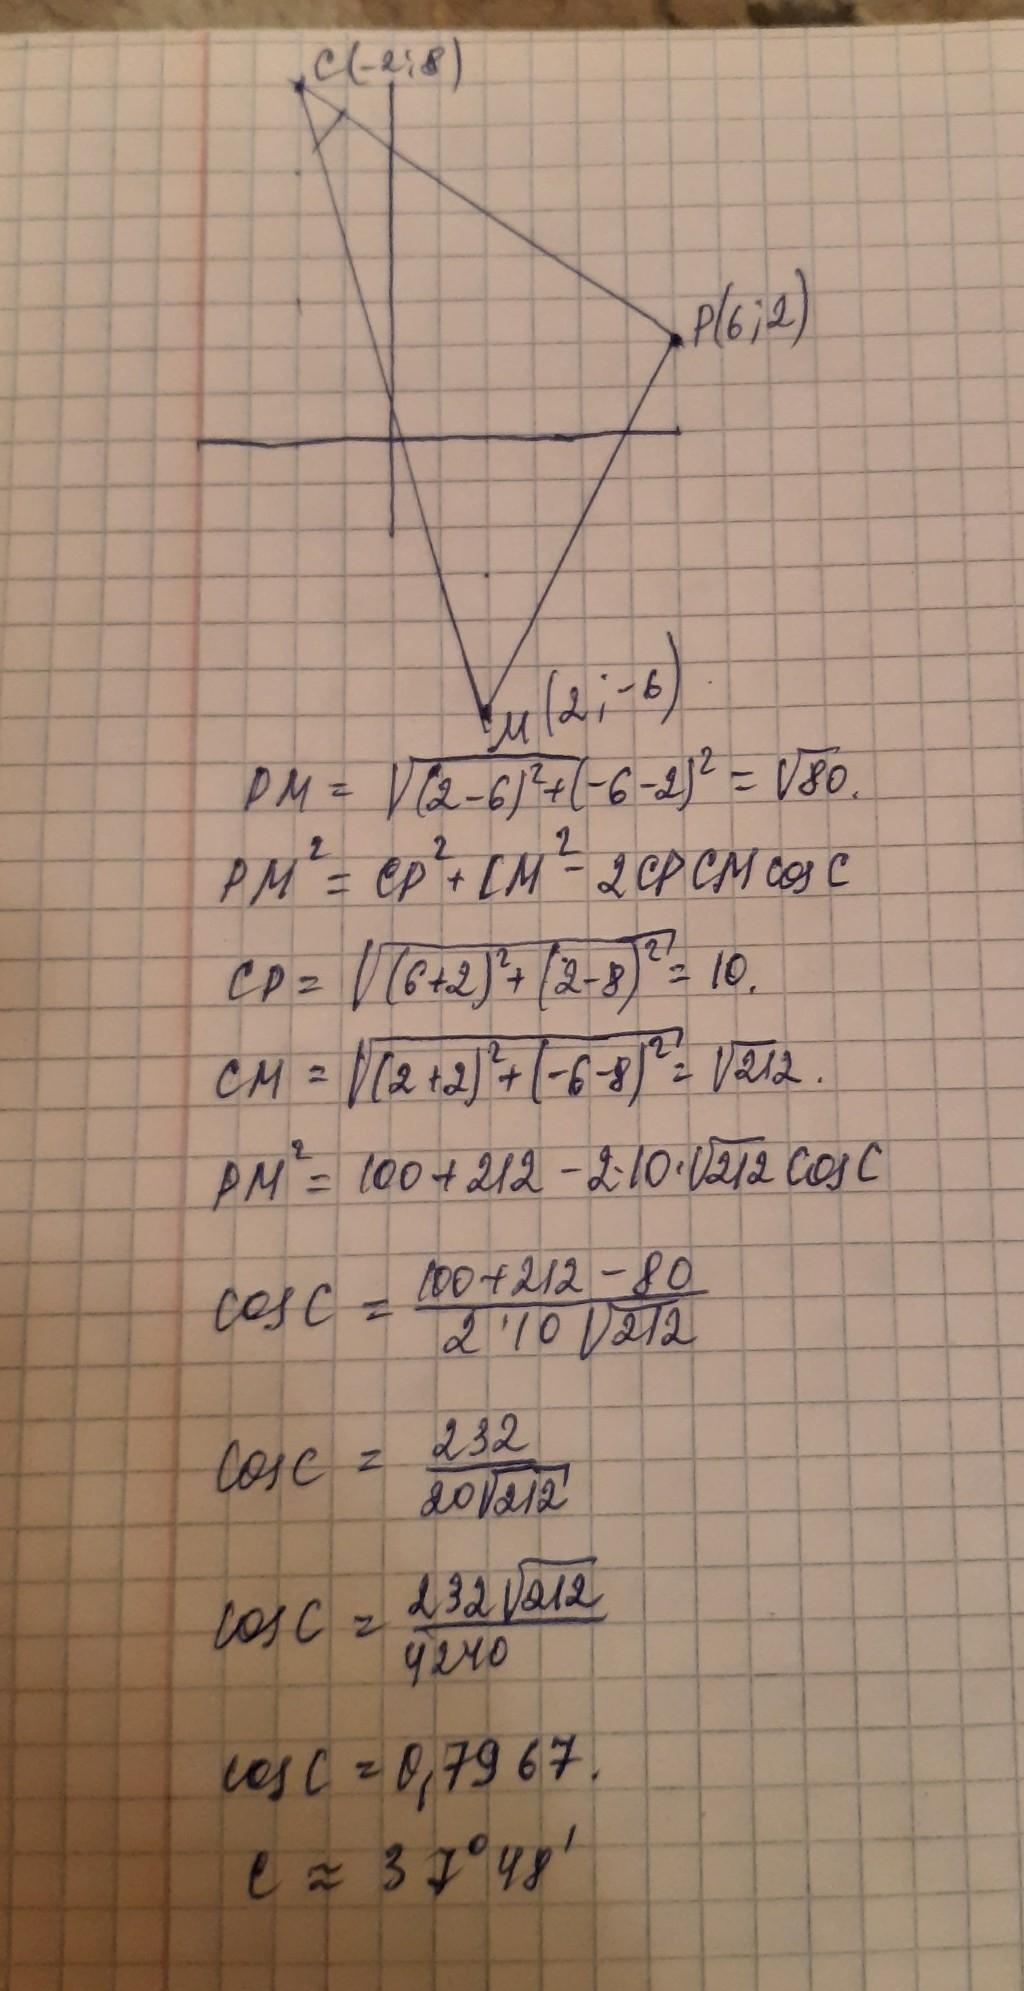 C(-2;8)
P(6;2)
M(2;-6)
PM = √((2-6)²+(-6-2)²) = √80.
PM² = CP² + CM² - 2CP CM cos C
CP = √((6+2)²+(2-8)²) = 10.
CM = √((2+2)²+(-6-8)²) = √212.
PM² = 100+212 - 2·10·√212 cos C
cos C = (100+212-80)/(2·10√212)
cos C = 232/(20√212)
cos C = 232√212/4240
cos C = 0,7967.
C ≈ 37°48'